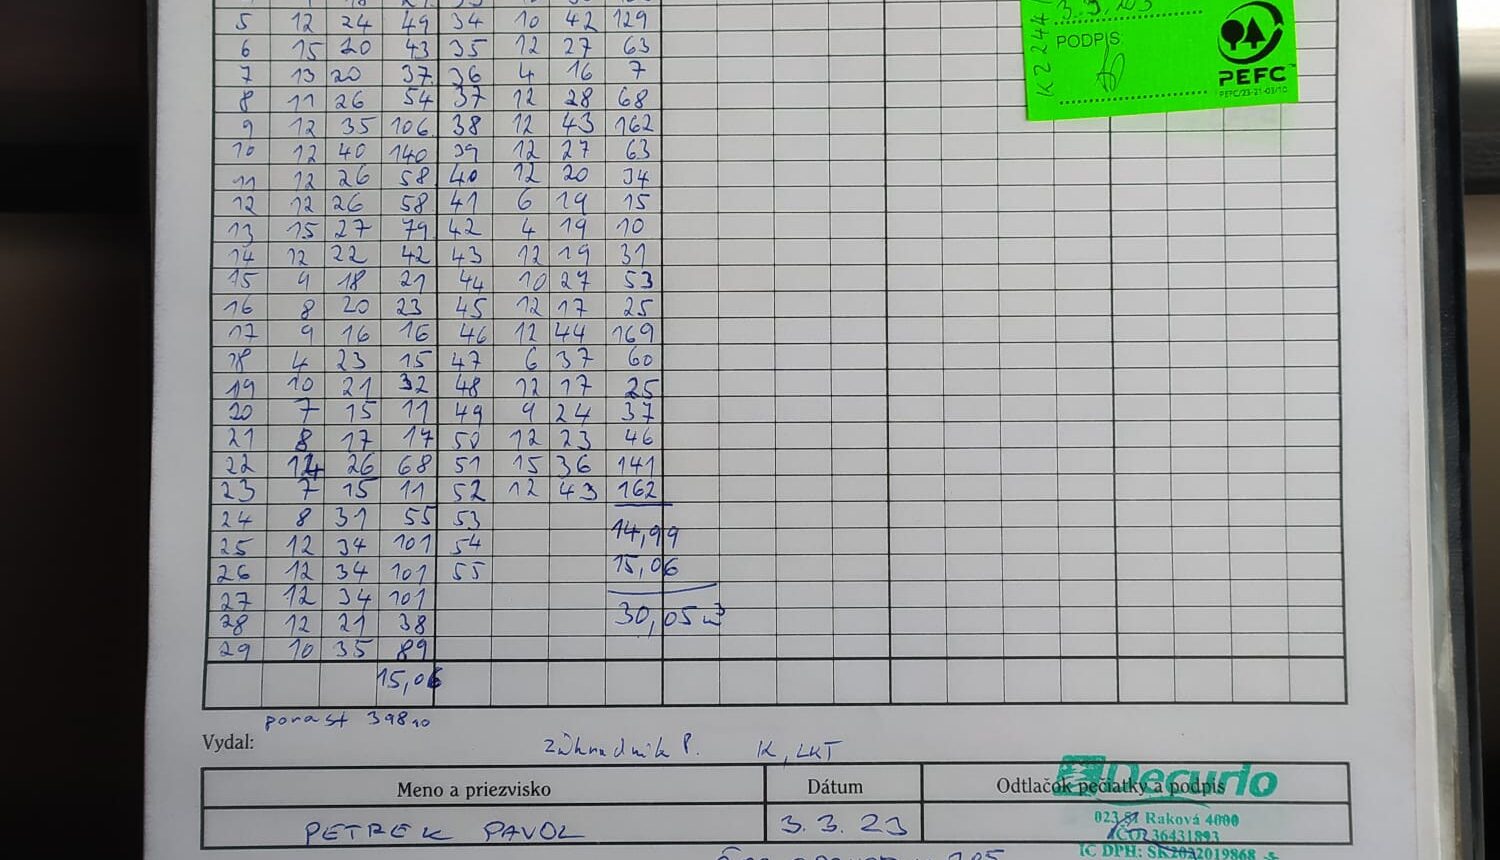 5 12 24 49 34 10 42 129
6 15 20 43 35 12 27 63
7 13 20 37 36 4 16 7
8 11 26 54 37 12 28 68
9 12 35 106 38 12 43 162
10 12 40 140 39 12 27 63
11 12 26 58 40 12 20 34
12 12 26 58 41 6 19 15
13 15 27 79 42 4 19 10
14 12 22 42 43 12 19 31
15 9 18 21 44 10 27 53
16 8 20 23 45 12 17 25
17 9 16 16 46 12 44 169
18 4 23 15 47 6 37 60
19 10 21 32 48 12 17 25
20 7 15 11 49 9 24 37
21 8 17 17 50 12 23 46
22 14 26 68 51 15 36 141
23 7 15 11 52 12 43 162
24 8 31 55 53
14,99
25 12 34 101 54
26 12 34 101 55 15,06
27 12 34 101
28 12 21 38 30,05 m³
29 10 35 89
15,06
PODPIS
PEFC
porast 398 10
Vydal:
Záhradník P. K, LKT
Meno a priezvisko Dátum Odtlačok pečiatky a podpis
PETREK PAVOL 3.3.23
Decurio
023 51 Raková 4000
IČO: 36431893
IC DPH: SK2022019868